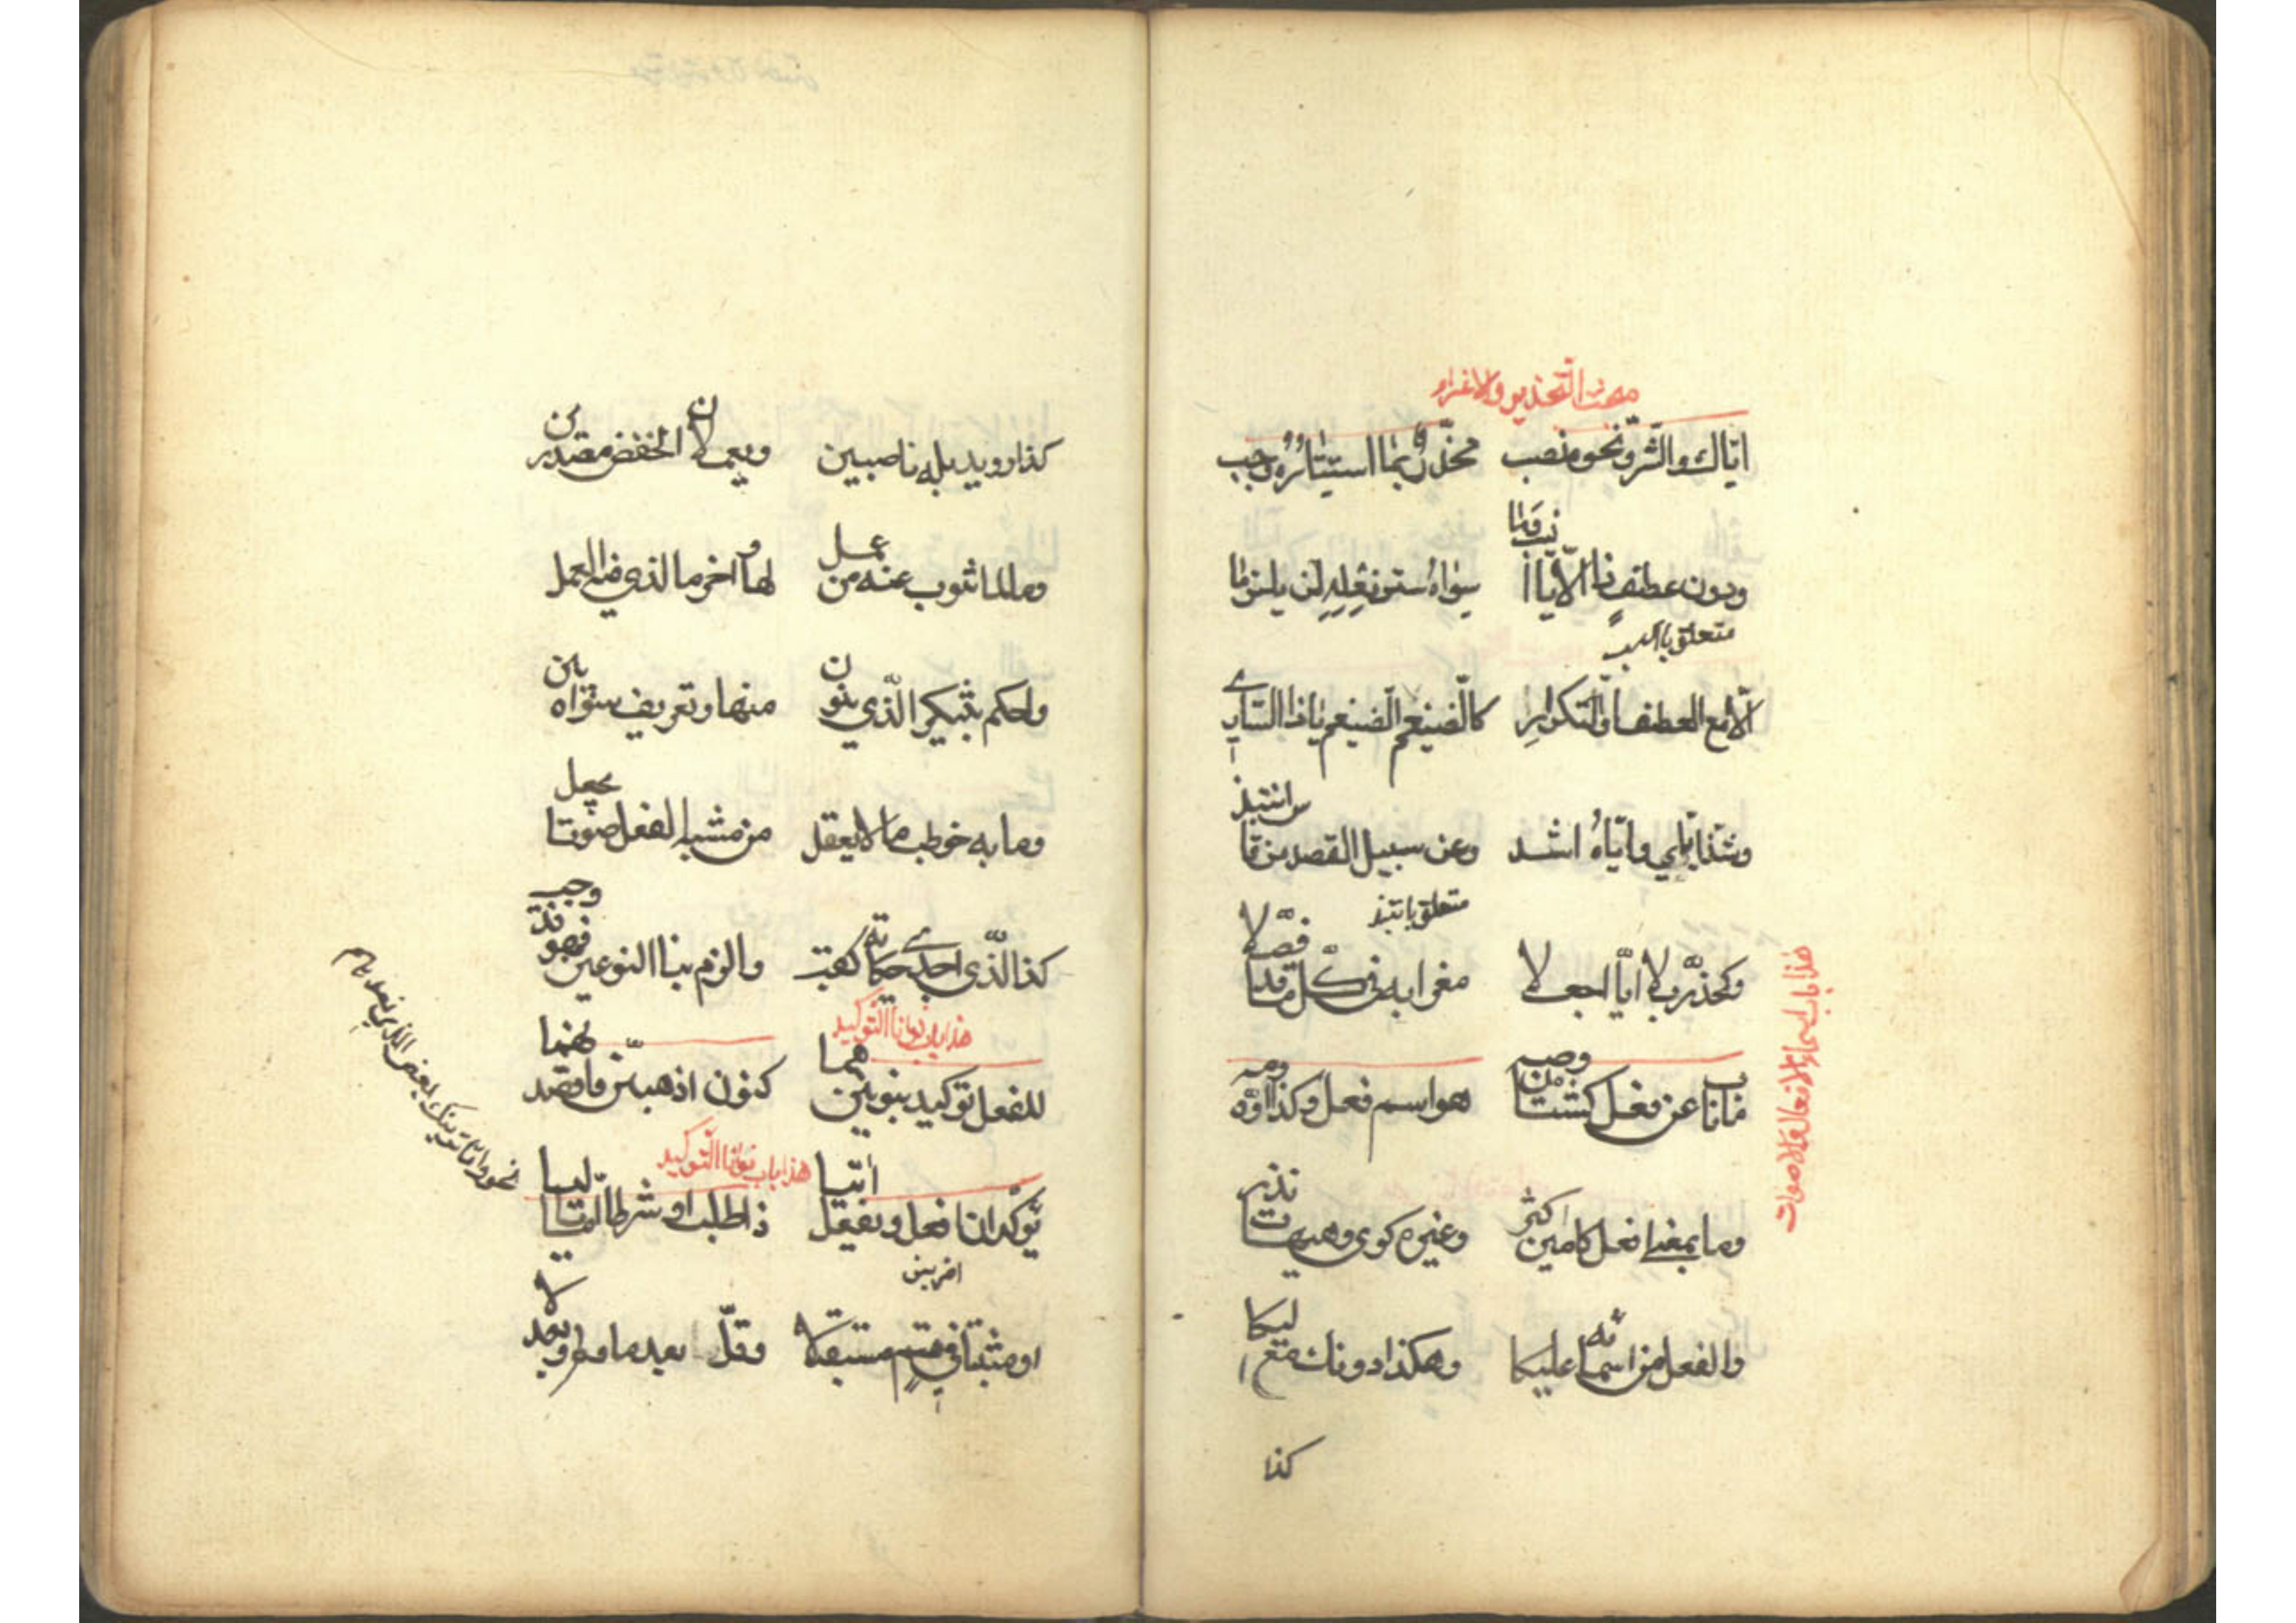 مبحث التحذير والاغراء
اياك والشر ونحوه نصب محذر بما استتاره وجب
ودون عطف ذا لايا انسب وما سواه ستر فعله لن يلزما
متعلق بانسب
الا مع العطف او التكرار كالضيغم الضيغم ياذا الساري
وشذ اياي واياه اشذ وعن سبيل القصد من قاس انتبذ
متعلق بانتبذ
وكمحذر بلا ايا اجعلا مغرا به في كل ما قد فصلا
هذا باب اسماء الافعال والاصوات
ما ناب عن فعل كشتان وصه هو اسم فعل وكذا اوه ومه
وما بمعنى افعل كامين كثر وغيره كوى وهيهات نذر
والفعل من اسمائه عليكا وهكذا دونك مع اليكا
كذا
كذا رويد بله ناصبين ويعملان الخفض مصدرين
وما لما تنوب عنه من عمل لها واخر ما الذي فيه العمل
واحكم بتنكير الذي ينون منها وتعريف سواه بين
وما به خوطب ما لا يعقل من مشبه الفعل صوتا يجعل
كذا الذي اجدى حكاية كقب والزم بنا النوعين فهو قد وجب
هذا باب نونا التوكيد
للفعل توكيد بنونين هما كنون اذهبن واقصدنهما
هذا باب نونا التوكيد
يؤكدان افعل ويفعل اتيا ذا طلب او شرطا اما تاليا
اضربن
او مثبتا في قسم مستقبلا وقل بعد ما ولم وبعد لا
نحو واما نرينك بعض الذي نعدهم